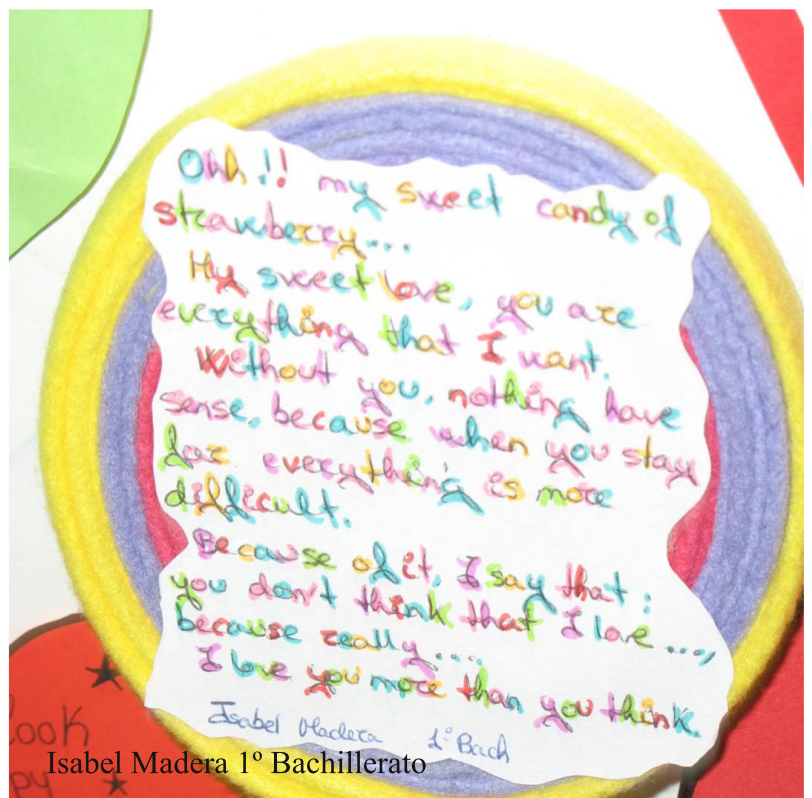 Ohh!! my sweet candy of
strawberry...
My sweet love, you are
everything that I want.
Without you, nothing have
sense, because when you stay
far everything is more
difficult.
Because of it, I say that:
you don't think that I love ...,
because really....
I love you more than you think.
Isabel Madera 1º Bach
ook
py
Isabel Madera 1º Bachillerato